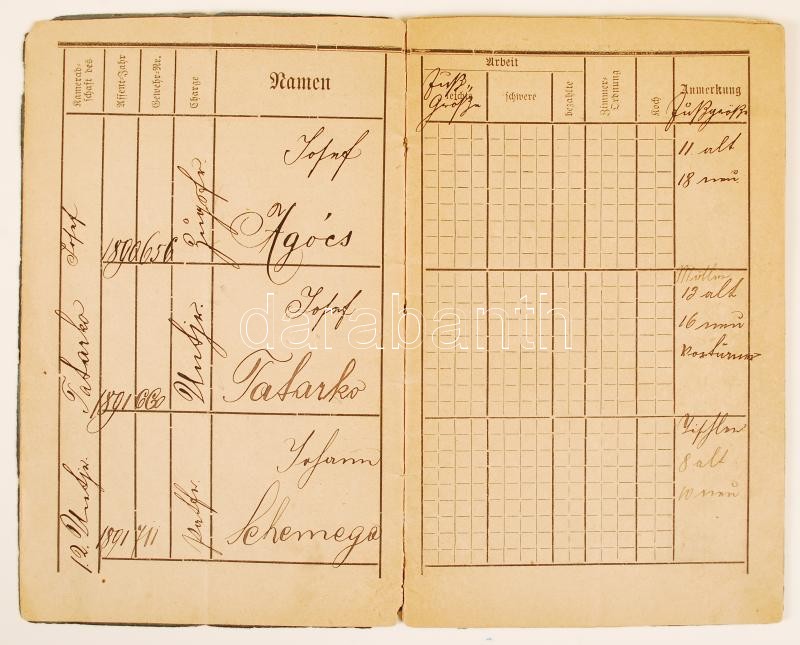 Kamerad-
schaft des
Assent-Jahr
Gewehr-Nr.
Charge
Namen
12. Untjr. Tatarko Josef
1890 656
Zugsfr.
Josef
Agócs
1891 660
Untjr.
Josef
Tatarko
1891 711
Patfr.
Johann
Schemega
Arbeit
leichte
schwere
bezahlte
Zimmer-
Ordnung
Koch
Anmerkung
Fuß
Größe
Fußgröße
11 alt
18 neu
13 alt
16 neu
Tischler
8 alt
10 neu
darabanth